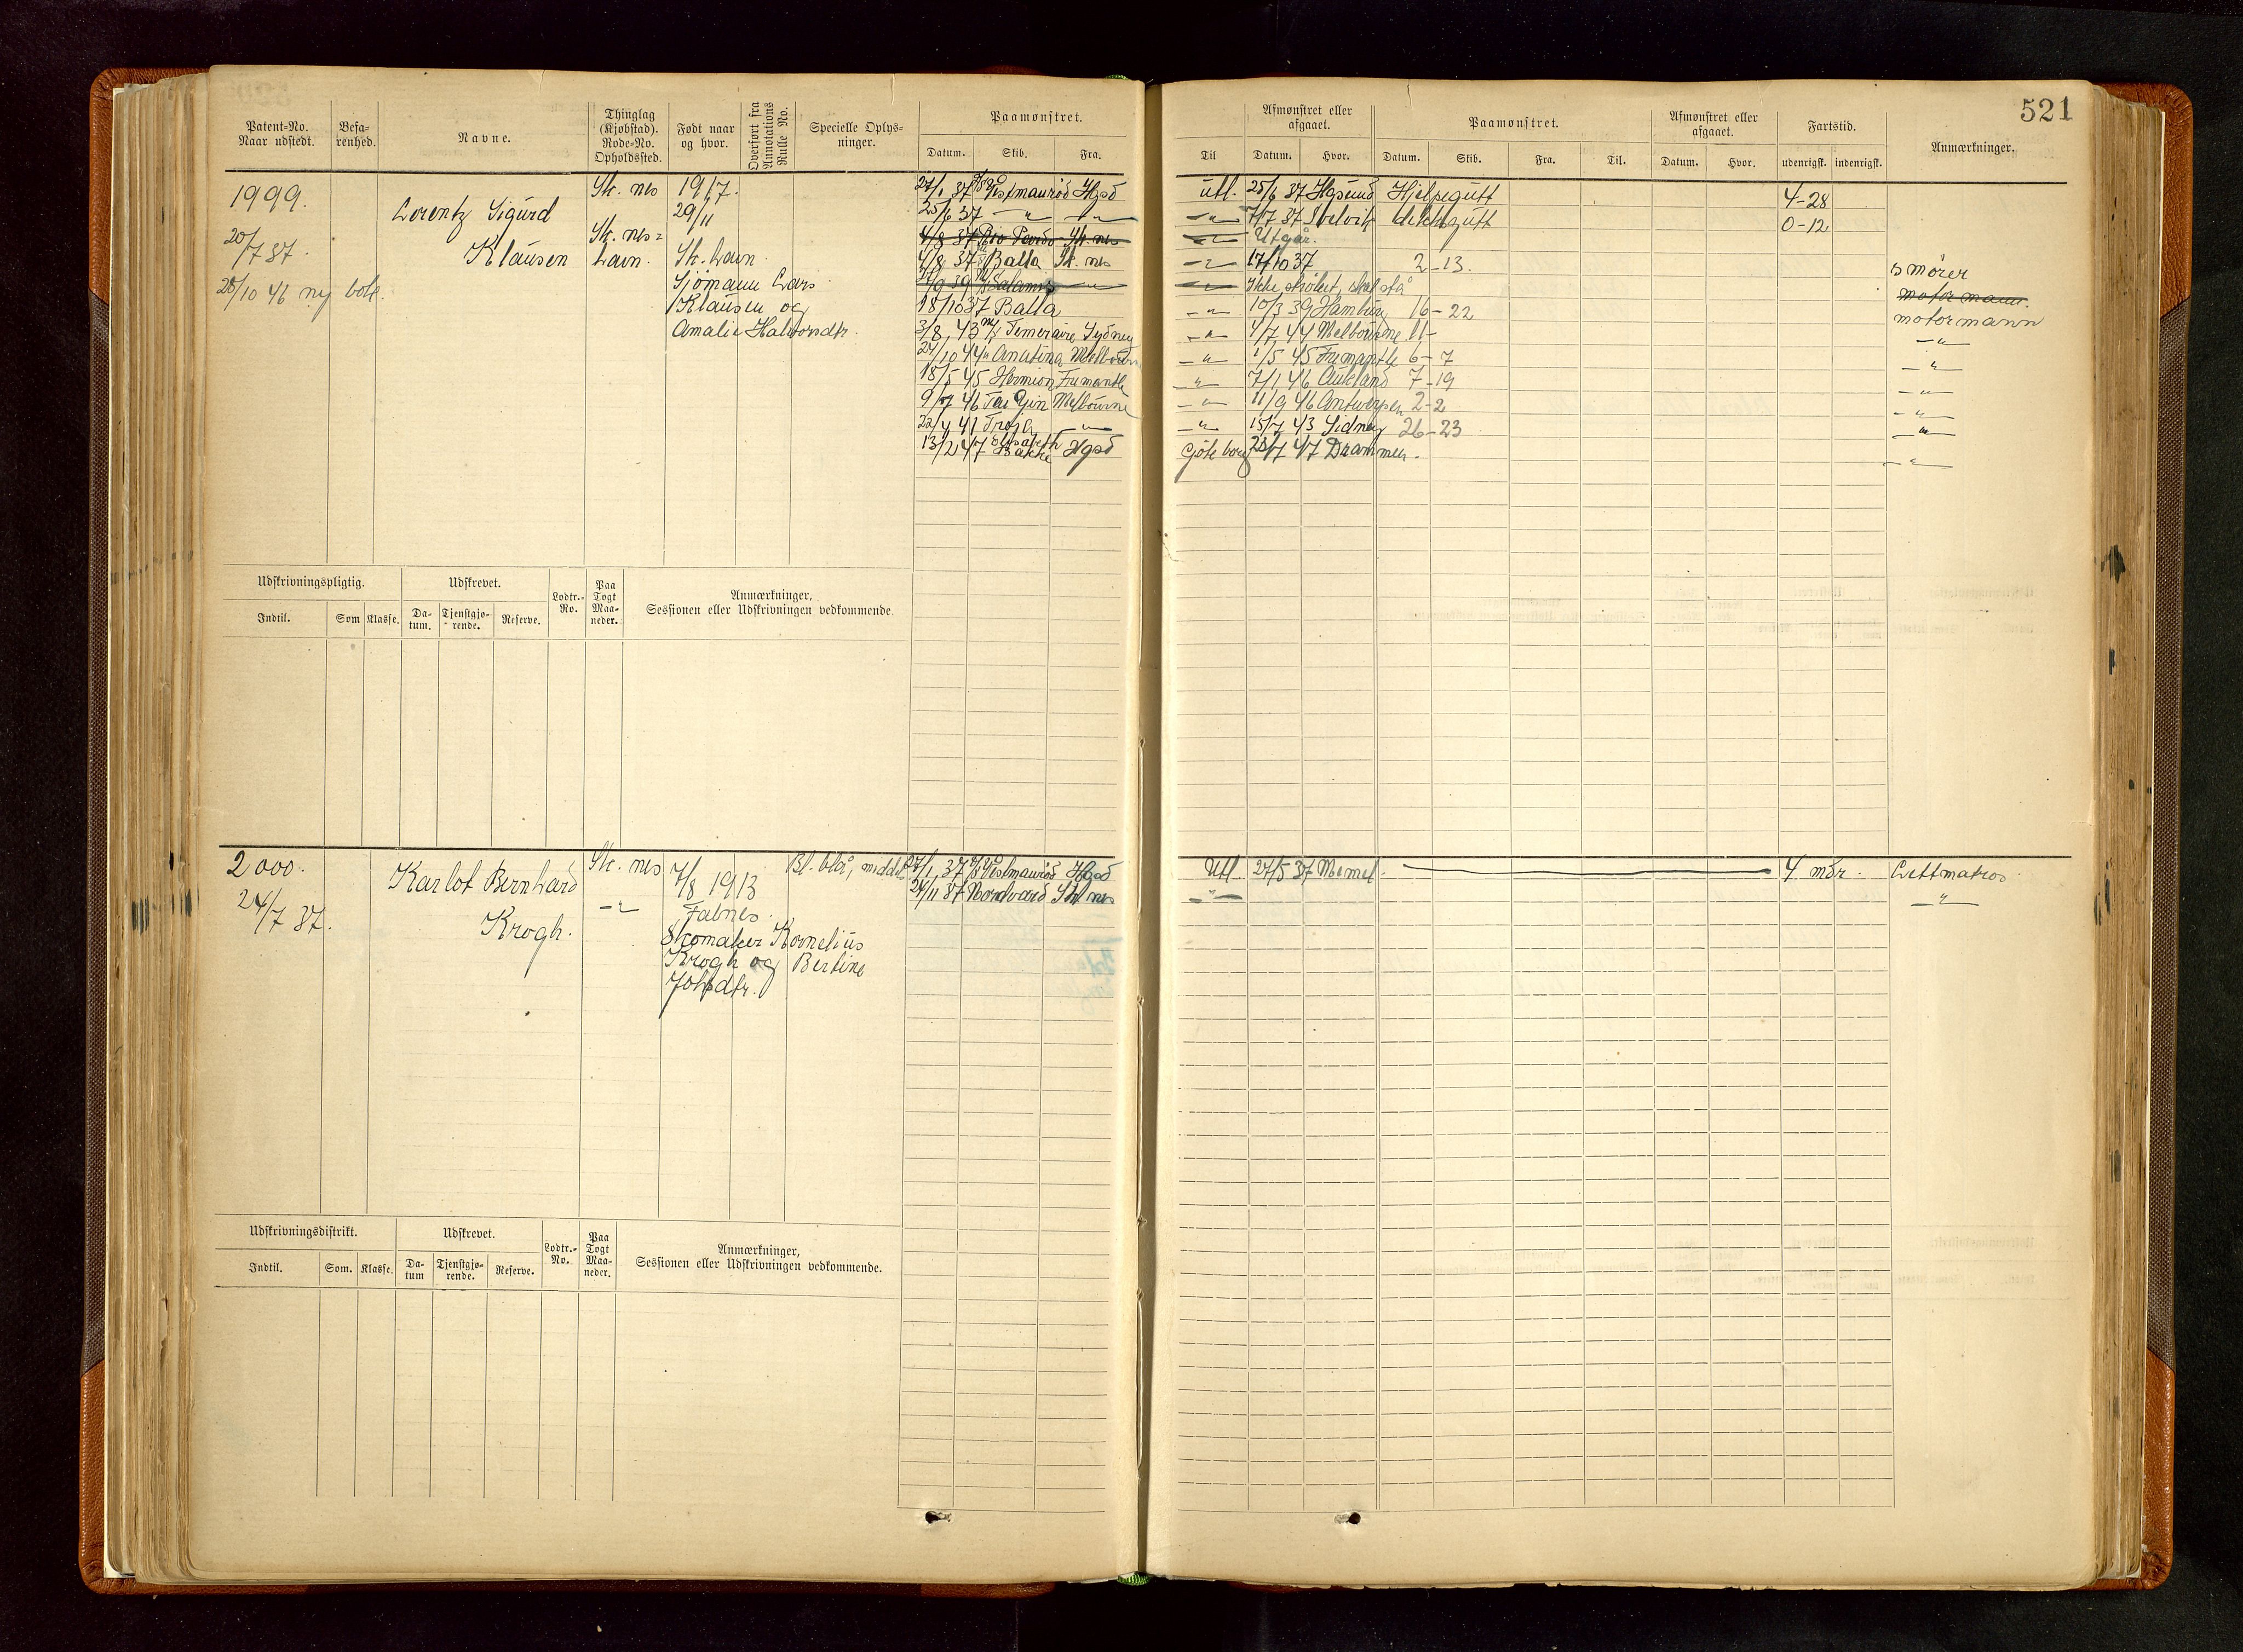 521
Patent-No. Naar udstedt.
Befarenhed.
Navne.
Thinglag (Kjøbstad). Rode-No. Opholdssted.
Født naar og hvor.
Overført fra Annotations Rulle No.
Specielle Oplysninger.
Paamønstret.
Datum. Skib. Fra.
Til
Afmønstret eller afgaaet.
Datum. Hvor.
Paamønstret.
Datum. Skib. Fra. Til.
Afmønstret eller afgaaet.
Datum. Hvor.
Fartstid.
udenrigsk. indenrigsk.
Anmærkninger.
1999.
20/7 37.
28/10 46 ny bok.
Lorentz Sigurd
Klausen
Sk. nes
Sk. nes=
Lavn.
1917.
29/11
Sk. Lavn
Sjømann Lars
Klausen og
Amalie Halvorsdtr.
27/1 37 Vestmanrød Hgsd utl. 25/6 37 Hgsund Hjelpegutt 4-28
25/6 37 -"- -"- -"- 7/7 37 Svelvik dekksgutt 0-12
4/8 37 Sk. nes -"- Utgår.
4/8 37 Balla Sk. nes -"- 17/10 37 2-13. smører
Salamis -"- Ikke strøket, skal stå motormann.
18/10 37 Balla -"- 10/3 39 Hamburg 16-22 motormann
3/8 43 M/T Temeraire Sydney -"- 4/7 44 Melbourne 11- -"-
24/10 44 Anatina Melbourne -"- 1/5 45 Fremantle 6-7 -"-
18/5 45 Hermion Fremantle -"- 7/1 46 Aukland 7-19 -"-
9/7 46 Tai Yin Melbourne -"- 11/9 46 Antwerpen 2-2 -"-
22/4 41 Troja -"- -"- 15/7 43 Sidney 26-23 -"-
13/2 47 Elisabeth Bakke Hgsd Göteborg 23/7 47 Drammen. -"-
Udskrivningspligtig.
Indtil. Som Klasse.
Udskrevet.
Datum. Tjenstgjørende. Reserve.
Lodtr.-No.
Paa Togt Maaneder.
Anmærkninger,
Sessionen eller Udskrivningen vedkommende.
2000.
24/7 37.
Karlot Bernhard
Krogh.
Sk. nes
-"-
7/8 1913
Falnes.
Skomaker Kornelius
Krogh og Bertine
Johsdtr.
Bl. blå, middels
27/1 37 Vestmanrød Hgsd Utl. 27/5 37 Memel. 4 mdr. Lettmatros
29/11 37 Nordvard Sk. nes -"- -"-
Udskrivningsdistrikt.
Indtil. Som. Klasse.
Udskrevet.
Datum Tjenstgjørende. Reserve.
Lodtr.-No.
Paa Togt Maaneder.
Anmærkninger,
Sessionen eller Udskrivningen vedkommende.